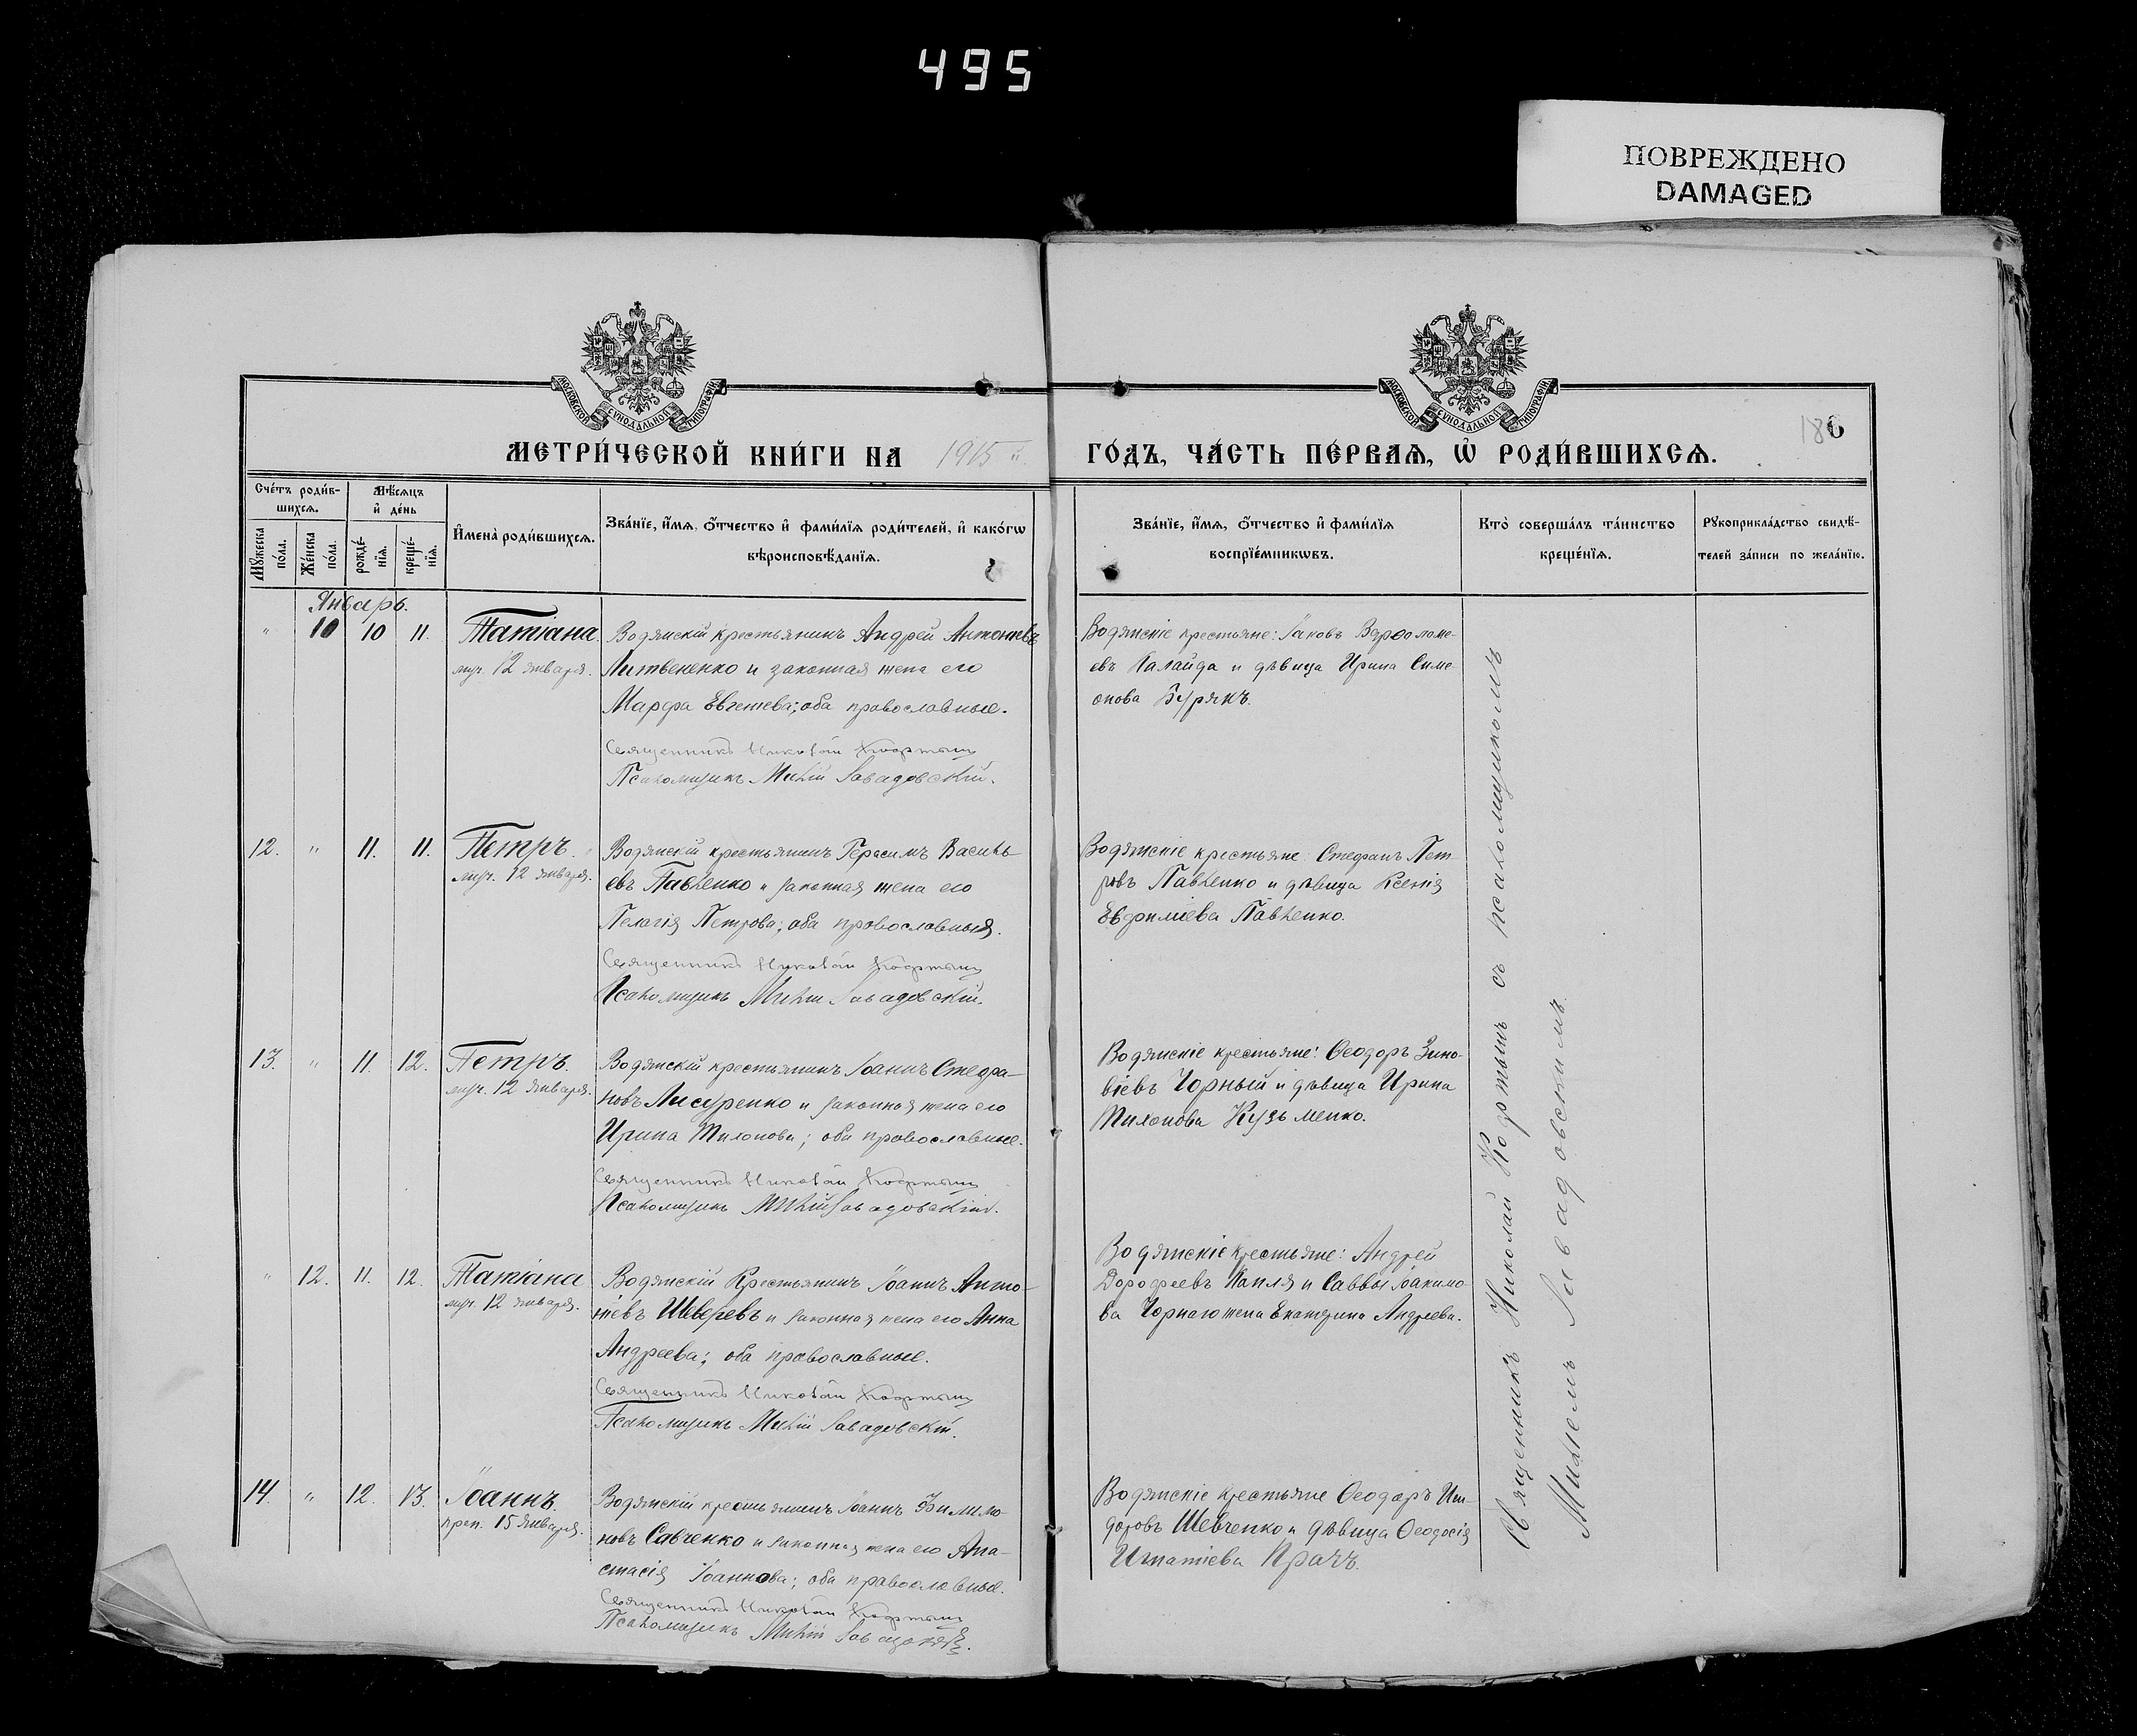 495
ПОВРЕЖДЕНО
DAMAGED
МОСКОВСКОЙ СѴНОДАЛЬНОЙ ТИПОГРАФІИ
МОСКОВСКОЙ СѴНОДАЛЬНОЙ ТИПОГРАФІИ
186
МЕТРИ́ЧЕСКОЙ КНИ́ГИ НА 1915 й. ГО́ДЪ, ЧА́СТЬ ПЕ́РВАѦ, Ѡ҆ РОДИ́ВШИХСѦ.
Сче́тъ роди́в-
шихсѧ.
Мѣ́сѧцъ
и҆ де́нь
Мꙋ́жеска по́ла.
Же́нска по́ла.
рожде́-
нїѧ.
креще́-
нїѧ.
И҆мена̀ роди́вшихсѧ.
Зва́нїе, и҆́мѧ, ѻ҆́тчество и҆ фами́лїѧ роди́телей, и҆ како́гѡ
вѣроисповѣ́данїѧ.
Зва́нїе, и҆́мѧ, ѻ҆́тчество и҆ фами́лїѧ
воспрїе́мникѡвъ.
Кто̀ соверша́лъ та́инство
креще́нїѧ.
Рꙋкоприкла́дство свидѣ́-
телей за́писи по жела́нїю.
Январь.
" 10 10 11. Татіана
муч. 12 января.
Водянскій крестьянинъ Андрей Антоніевъ
Литвененко и законная жена его
Марфа Евгеніева; оба православные.
Священникъ Николай Кофтынъ
Псаломщикъ Михаил Завадовскій.
Водянскіе крестьяне: Іаковъ Варѳоломе-
евъ Калайда и дѣвица Ирина Симе-
онова Бурякъ.
12. " 11. 11. Петръ.
муч. 12 января.
Водянскій крестьянинъ Герасимъ Василь-
евъ Павленко и законная жена его
Пелагія Петрова; оба православныя.
Священникъ Николай Кофтынъ
Псаломщикъ Михаил Завадовскій.
Водянскіе крестьяне: Стефанъ Пет-
ровъ Павленко и дѣвица Ксенія
Евфиміева Павленко.
13. " 11. 12. Петръ.
муч. 12 января.
Водянскій крестьянинъ Іоаннъ Стефа-
новъ Лисуренко и законная жена его
Ирина Тихонова; оба православные.
Священникъ Николай Кофтынъ
Псаломщикъ Михаил Завадовскій.
Водянскіе крестьяне: Ѳеодоръ Зино-
віевъ Чорный и дѣвица Ирина
Тихонова Кузьменко.
" 12. 11. 12. Татіана
муч. 12 января.
Водянскій Крестьянинъ Іоаннъ Анто-
ніевъ Шваревъ и законная жена его Анна
Андреева; оба православные.
Священникъ Николай Кофтынъ
Псаломщикъ Михаил Завадовскій.
Водянскіе крестьяне: Андрей
Дорофеевъ Капля и Саввы Іоакимо-
ва Чорнаго жена Екатерина Андреева.
14. " 12. 13. Іоаннъ.
преп. 15 января.
Водянскій крестьянинъ Іоаннъ Филимо-
новъ Савченко и законная жена его Ана-
стасія Іоаннова; оба православные.
Священникъ Николай Кофтынъ
Псаломщикъ Михаил
Водянскіе крестьяне Ѳеодоръ Иси-
доровъ Шевченко и дѣвица Ѳеодосія
Игнатіева Прачъ.
Священникъ Николай Кофтынъ съ псаломщикомъ
Михаемъ Завадовскимъ.